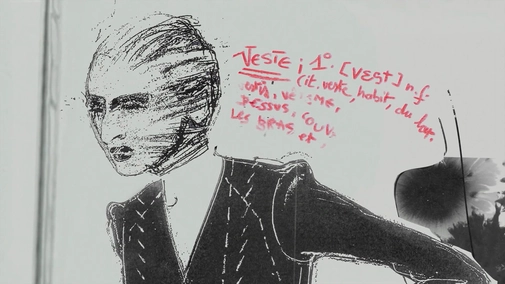 VESTE ; 1°. [VƐST] n.f
(it. veste, habit, du lat.
DESSUS, COUV
LES BRAS et